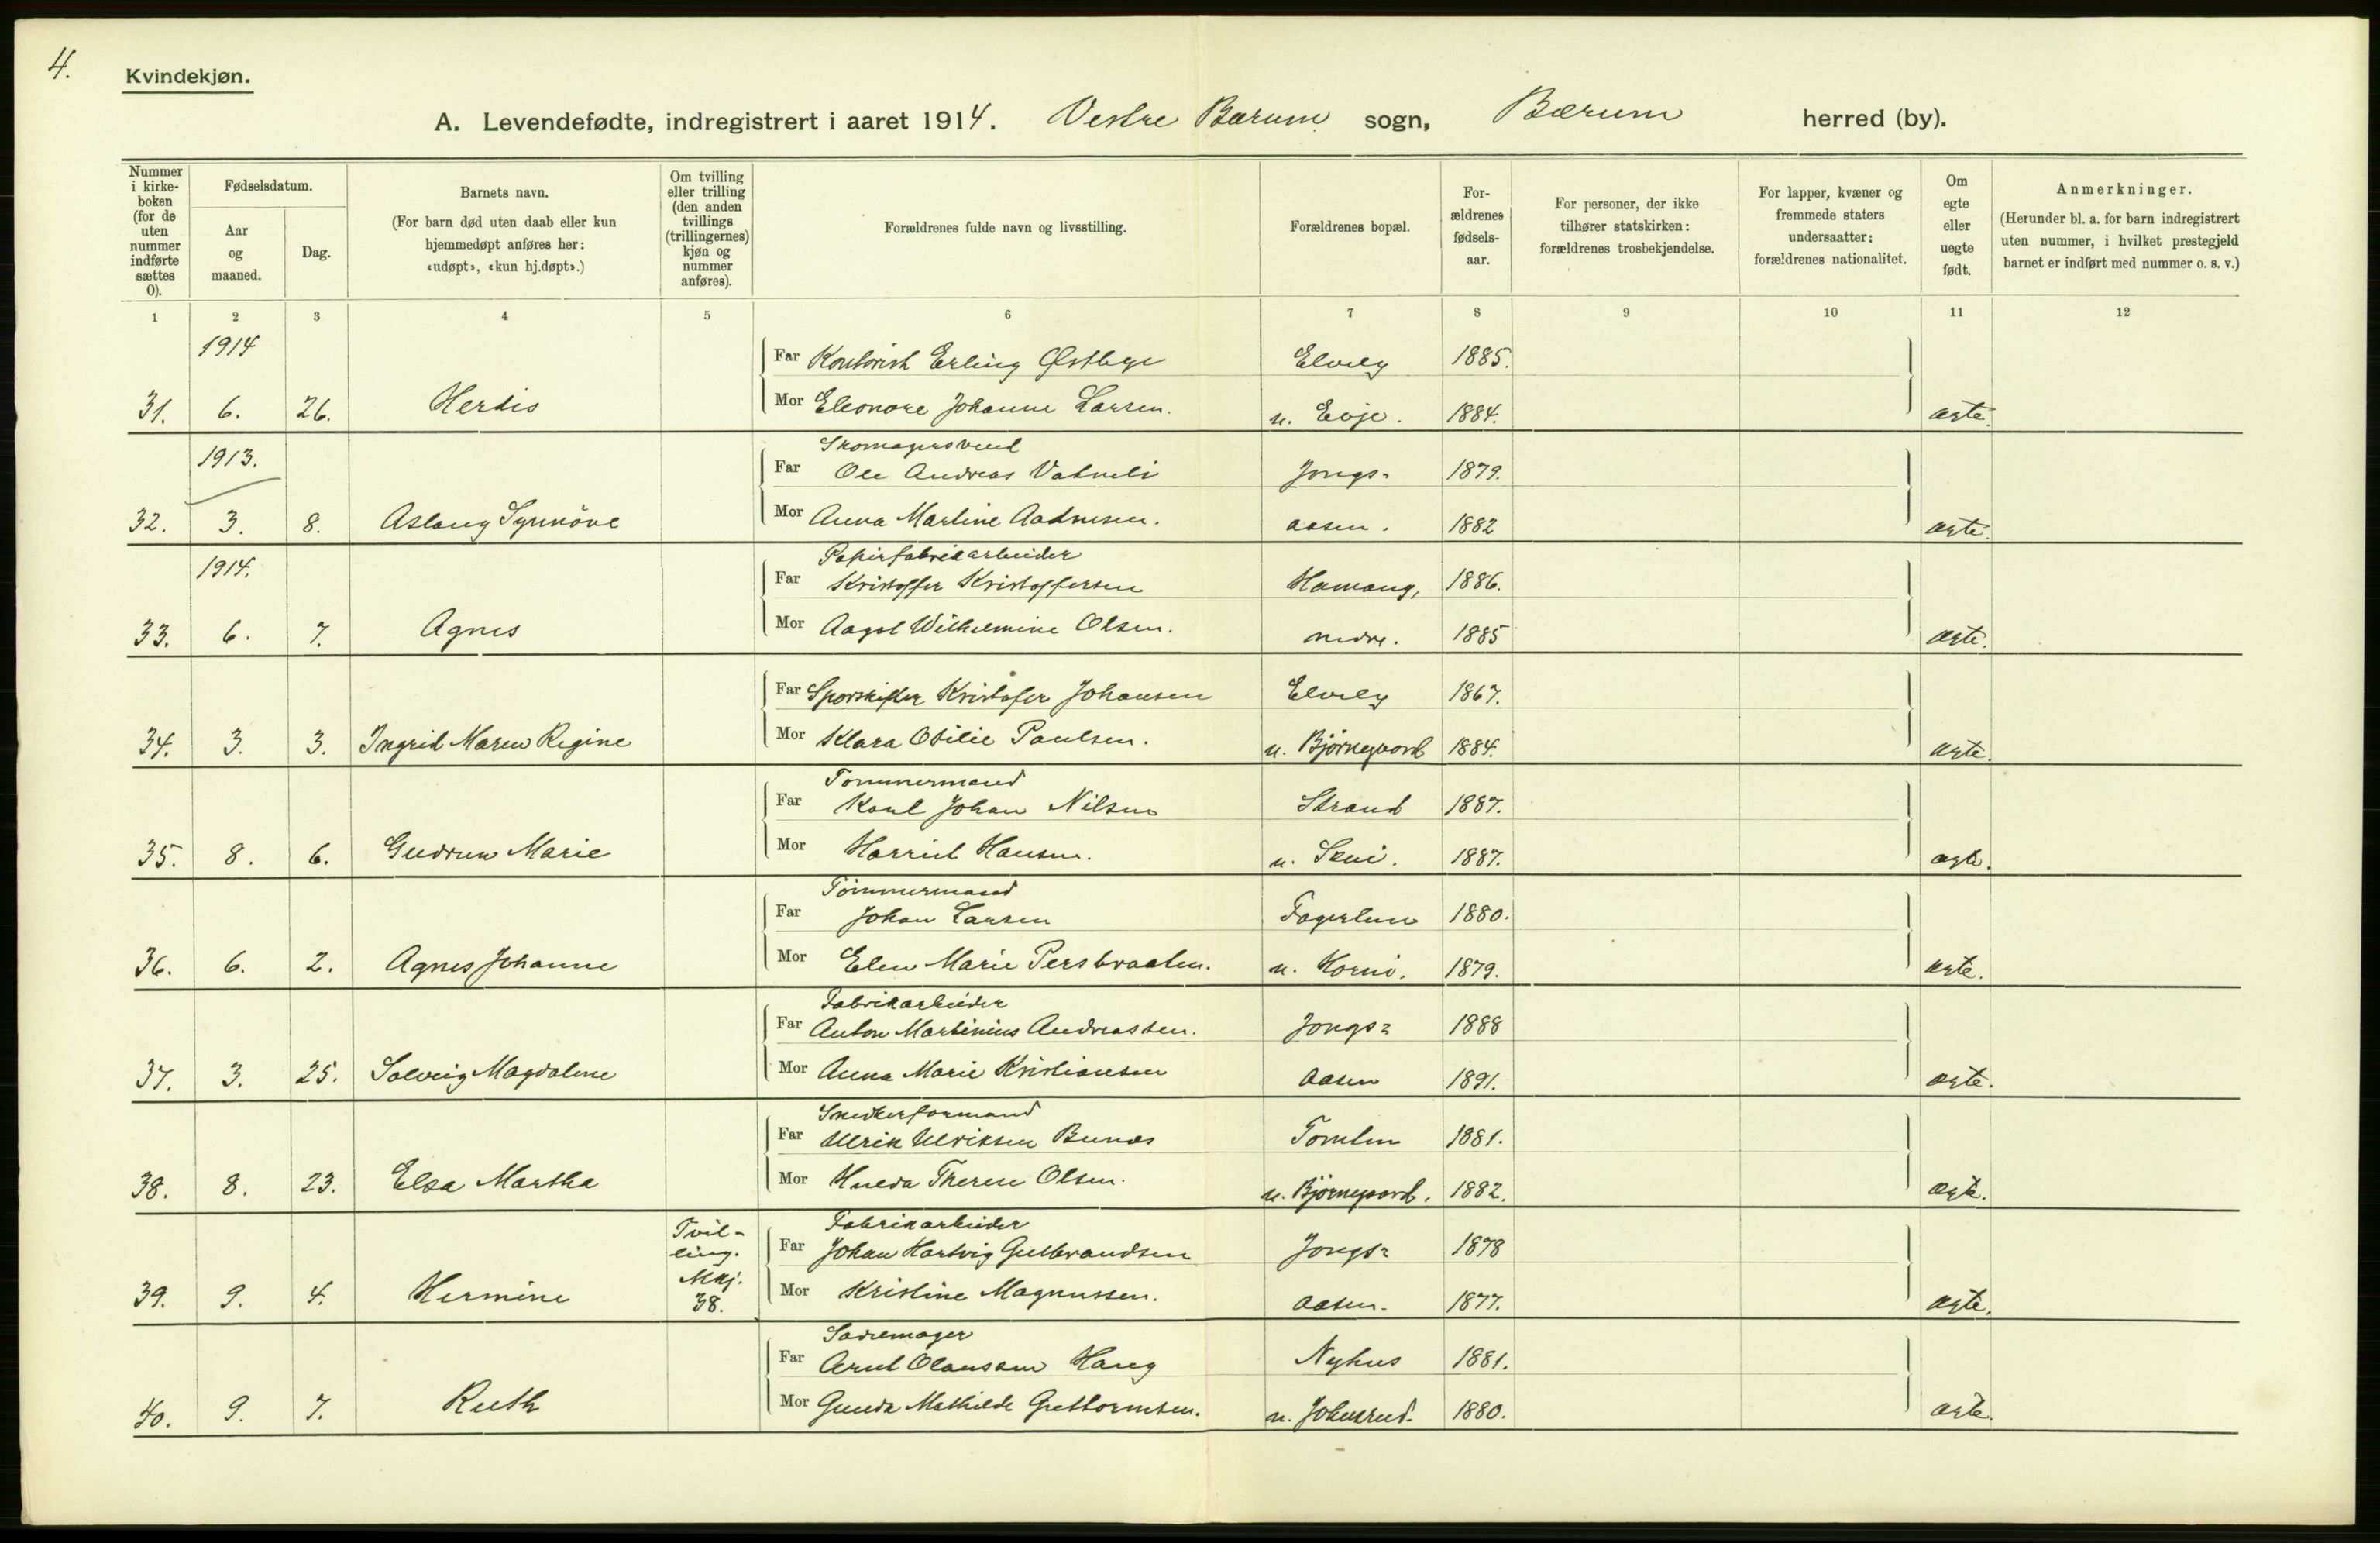 4.
Kvindekjøn.
A. Levendefødte, indregistrert i aaret 1914. Vestre Bærum sogn, Bærum herred (by).
Nummer i kirke-boken (for de uten nummer indførte sættes 0).
Fødselsdatum.
Aar og maaned.
Dag.
Barnets navn.
(For barn død uten daab eller kun hjemmedøpt anføres her: «udøpt», «kun hj.døpt».)
Om tvilling eller trilling (den anden tvillings (trillingernes) kjøn og nummer anføres).
Forældrenes fulde navn og livsstilling.
Forældrenes bopæl.
For-ældrenes fødsels-aar.
For personer, der ikke tilhører statskirken: forældrenes trosbekjendelse.
For lapper, kvæner og fremmede staters undersaatter: forældrenes nationalitet.
Om egte eller uegte født.
Anmerkninger.
(Herunder bl. a. for barn indregistrert uten nummer, i hvilket prestegjeld barnet er indført med nummer o. s. v.)
1 2 3 4 5 6 7 8 9 10 11 12
1914
Far Kontorist Erling Østbye Elvely 1885.
31. 6. 26. Herdis Mor Eleonore Johanne Larsen. u. Evje. 1884. ægte.
1913. Skomagersvend
Far Ole Andreas Vatneli Jongs- 1879.
32. 3. 8. Aslaug Synnöve Mor Anna Martine Aadnesen. aasen. 1882 ægte.
1914. Papirfabrikarbeider
Far Kristoffer Kristoffersen Hamang, 1886.
33. 6. 7. Agnes Mor Aagot Wilhelmine Olsen. nedre. 1885 ægte.
Far Sporskifter Kristofer Johansen Elvely 1867.
34. 3. 3. Ingrid Maren Regine Mor Klara Otilie Paulsen. u. Bjørnegaard 1884. ægte.
Tømmermand
Far Karl Johan Nilsen Strand 1887.
35. 8. 6. Gudrun Marie Mor Harriet Hansen. u. Skui. 1887. ægte.
Tømmermand
Far Johan Larsen Fagerlun 1880.
36. 6. 2. Agnes Johanne Mor Elen Marie Persbraaten. u. Horni. 1879. ægte.
Fabrikarbeider
Far Anton Martinius Andreassen. Jongs- 1888
37. 3. 25. Solveig Magdalene Mor Anna Marie Kristiansen aasen 1891. ægte.
Snedkerformand
Far Ulrik Ulriksen Bunæs Tomten 1881.
38. 8. 23. Elsa Martha Mor Hulda Therese Olsen. u. Bjørnegaard. 1882. ægte.
Tvil-ling. Mkj. 38. Fabrikarbeider
Far Johan Hartvig Gulbrandsen Jongs- 1878
39. 9. 4. Hermine Mor Kristine Magnussen. aasen. 1877. ægte.
Sadelmager
Far Arnt Olaussen Haug Nyhus 1881.
40. 9. 7. Ruth Mor Gunda Mathilde Guttormsen. u. Johnsrud. 1880. ægte.